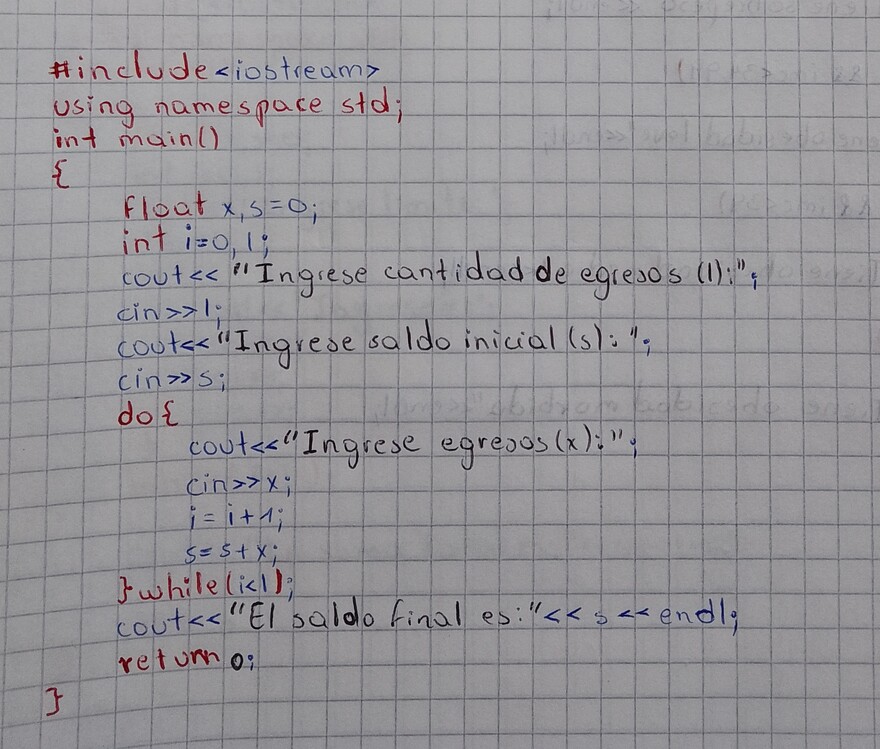 #include<iostream>
using namespace std;
int main()
{
float x,s=0;
int i=0,l;
cout<<"Ingrese cantidad de egresos (l):";
cin>>l;
cout<<"Ingrese saldo inicial (s): ";
cin>>s;
do{
cout<<"Ingrese egresos(x):";
cin>>x;
i=i+1;
s=s+x;
}while(i<l);
cout<<"El saldo final es:"<< s << endl;
return 0;
}